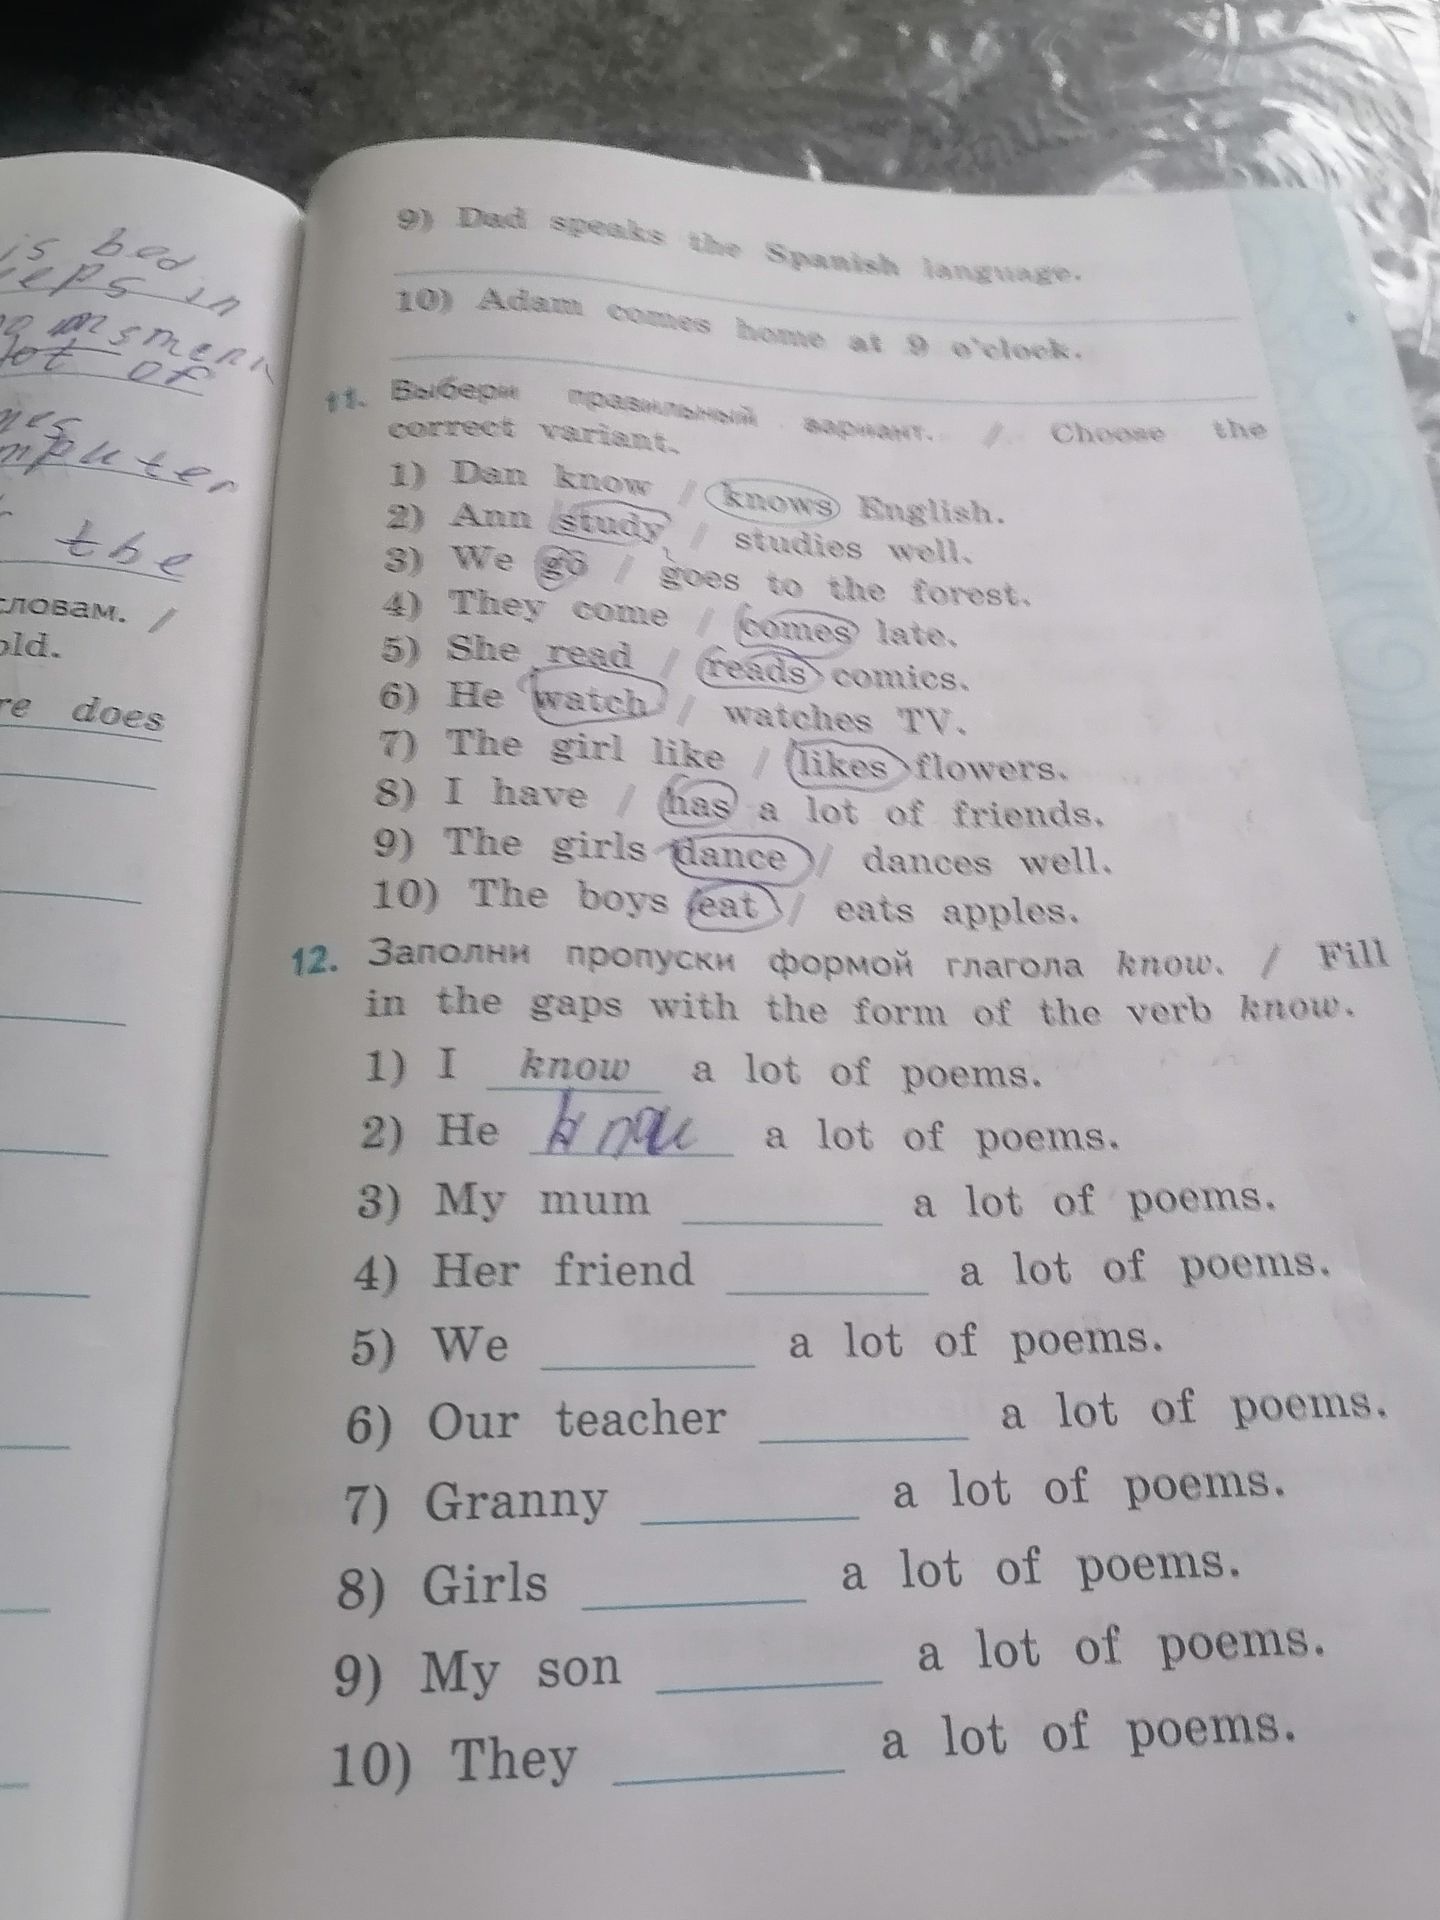 is bed
eeps in
lot of
mputer
the
словам. /
old.
re does
9) Dad speaks the Spanish language.
10) Adam comes home at 9 o'clock.
11. Выбери правильный вариант. / Choose the
correct variant.
1) Dan know / knows English.
2) Ann study / studies well.
3) We go / goes to the forest.
4) They come / comes late.
5) She read / reads comics.
6) He watch / watches TV.
7) The girl like / likes flowers.
8) I have / has a lot of friends.
9) The girls dance / dances well.
10) The boys eat / eats apples.
12. Заполни пропуски формой глагола know. / Fill
in the gaps with the form of the verb know.
1) I know a lot of poems.
2) He a lot of poems.
3) My mum a lot of poems.
4) Her friend a lot of poems.
5) We a lot of poems.
6) Our teacher a lot of poems.
7) Granny a lot of poems.
8) Girls a lot of poems.
9) My son a lot of poems.
10) They a lot of poems.